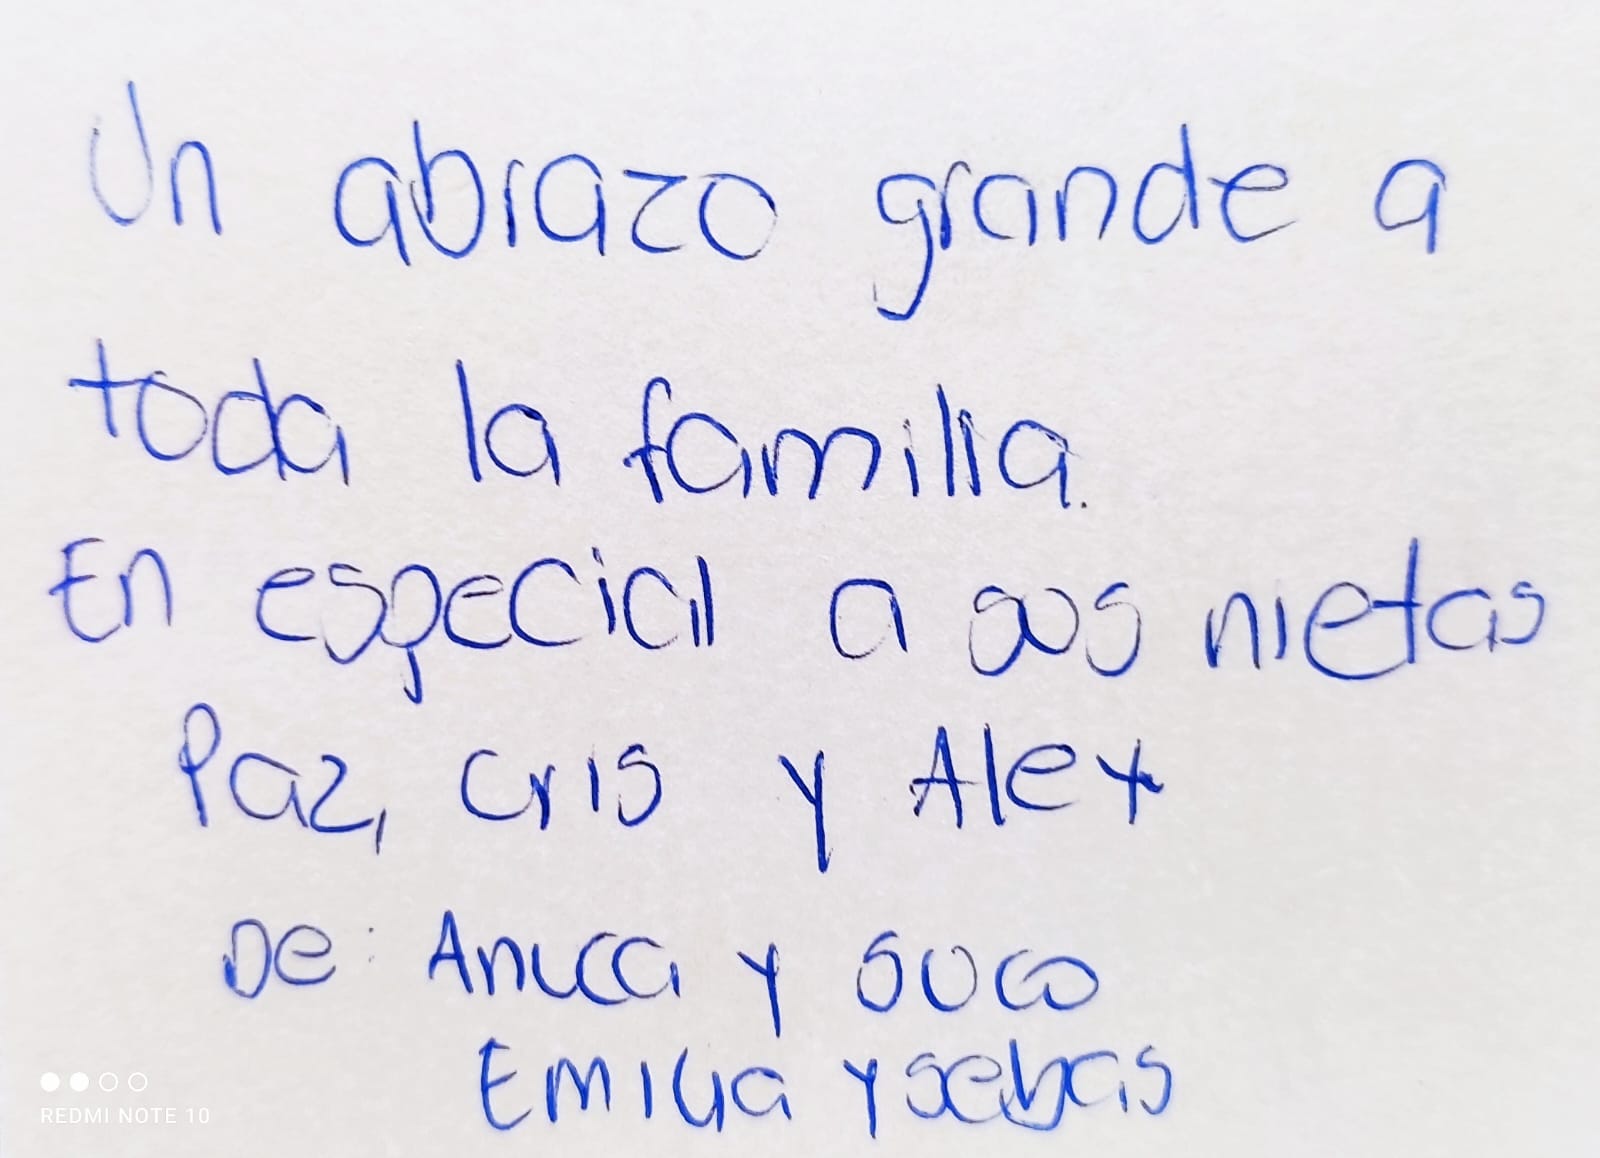 Un abrazo grande a
toda la familia.
En especial a sus nietas
Paz, Cris y Alex
De: Anucca y Suco
Emilia y sebas
REDMI NOTE 10